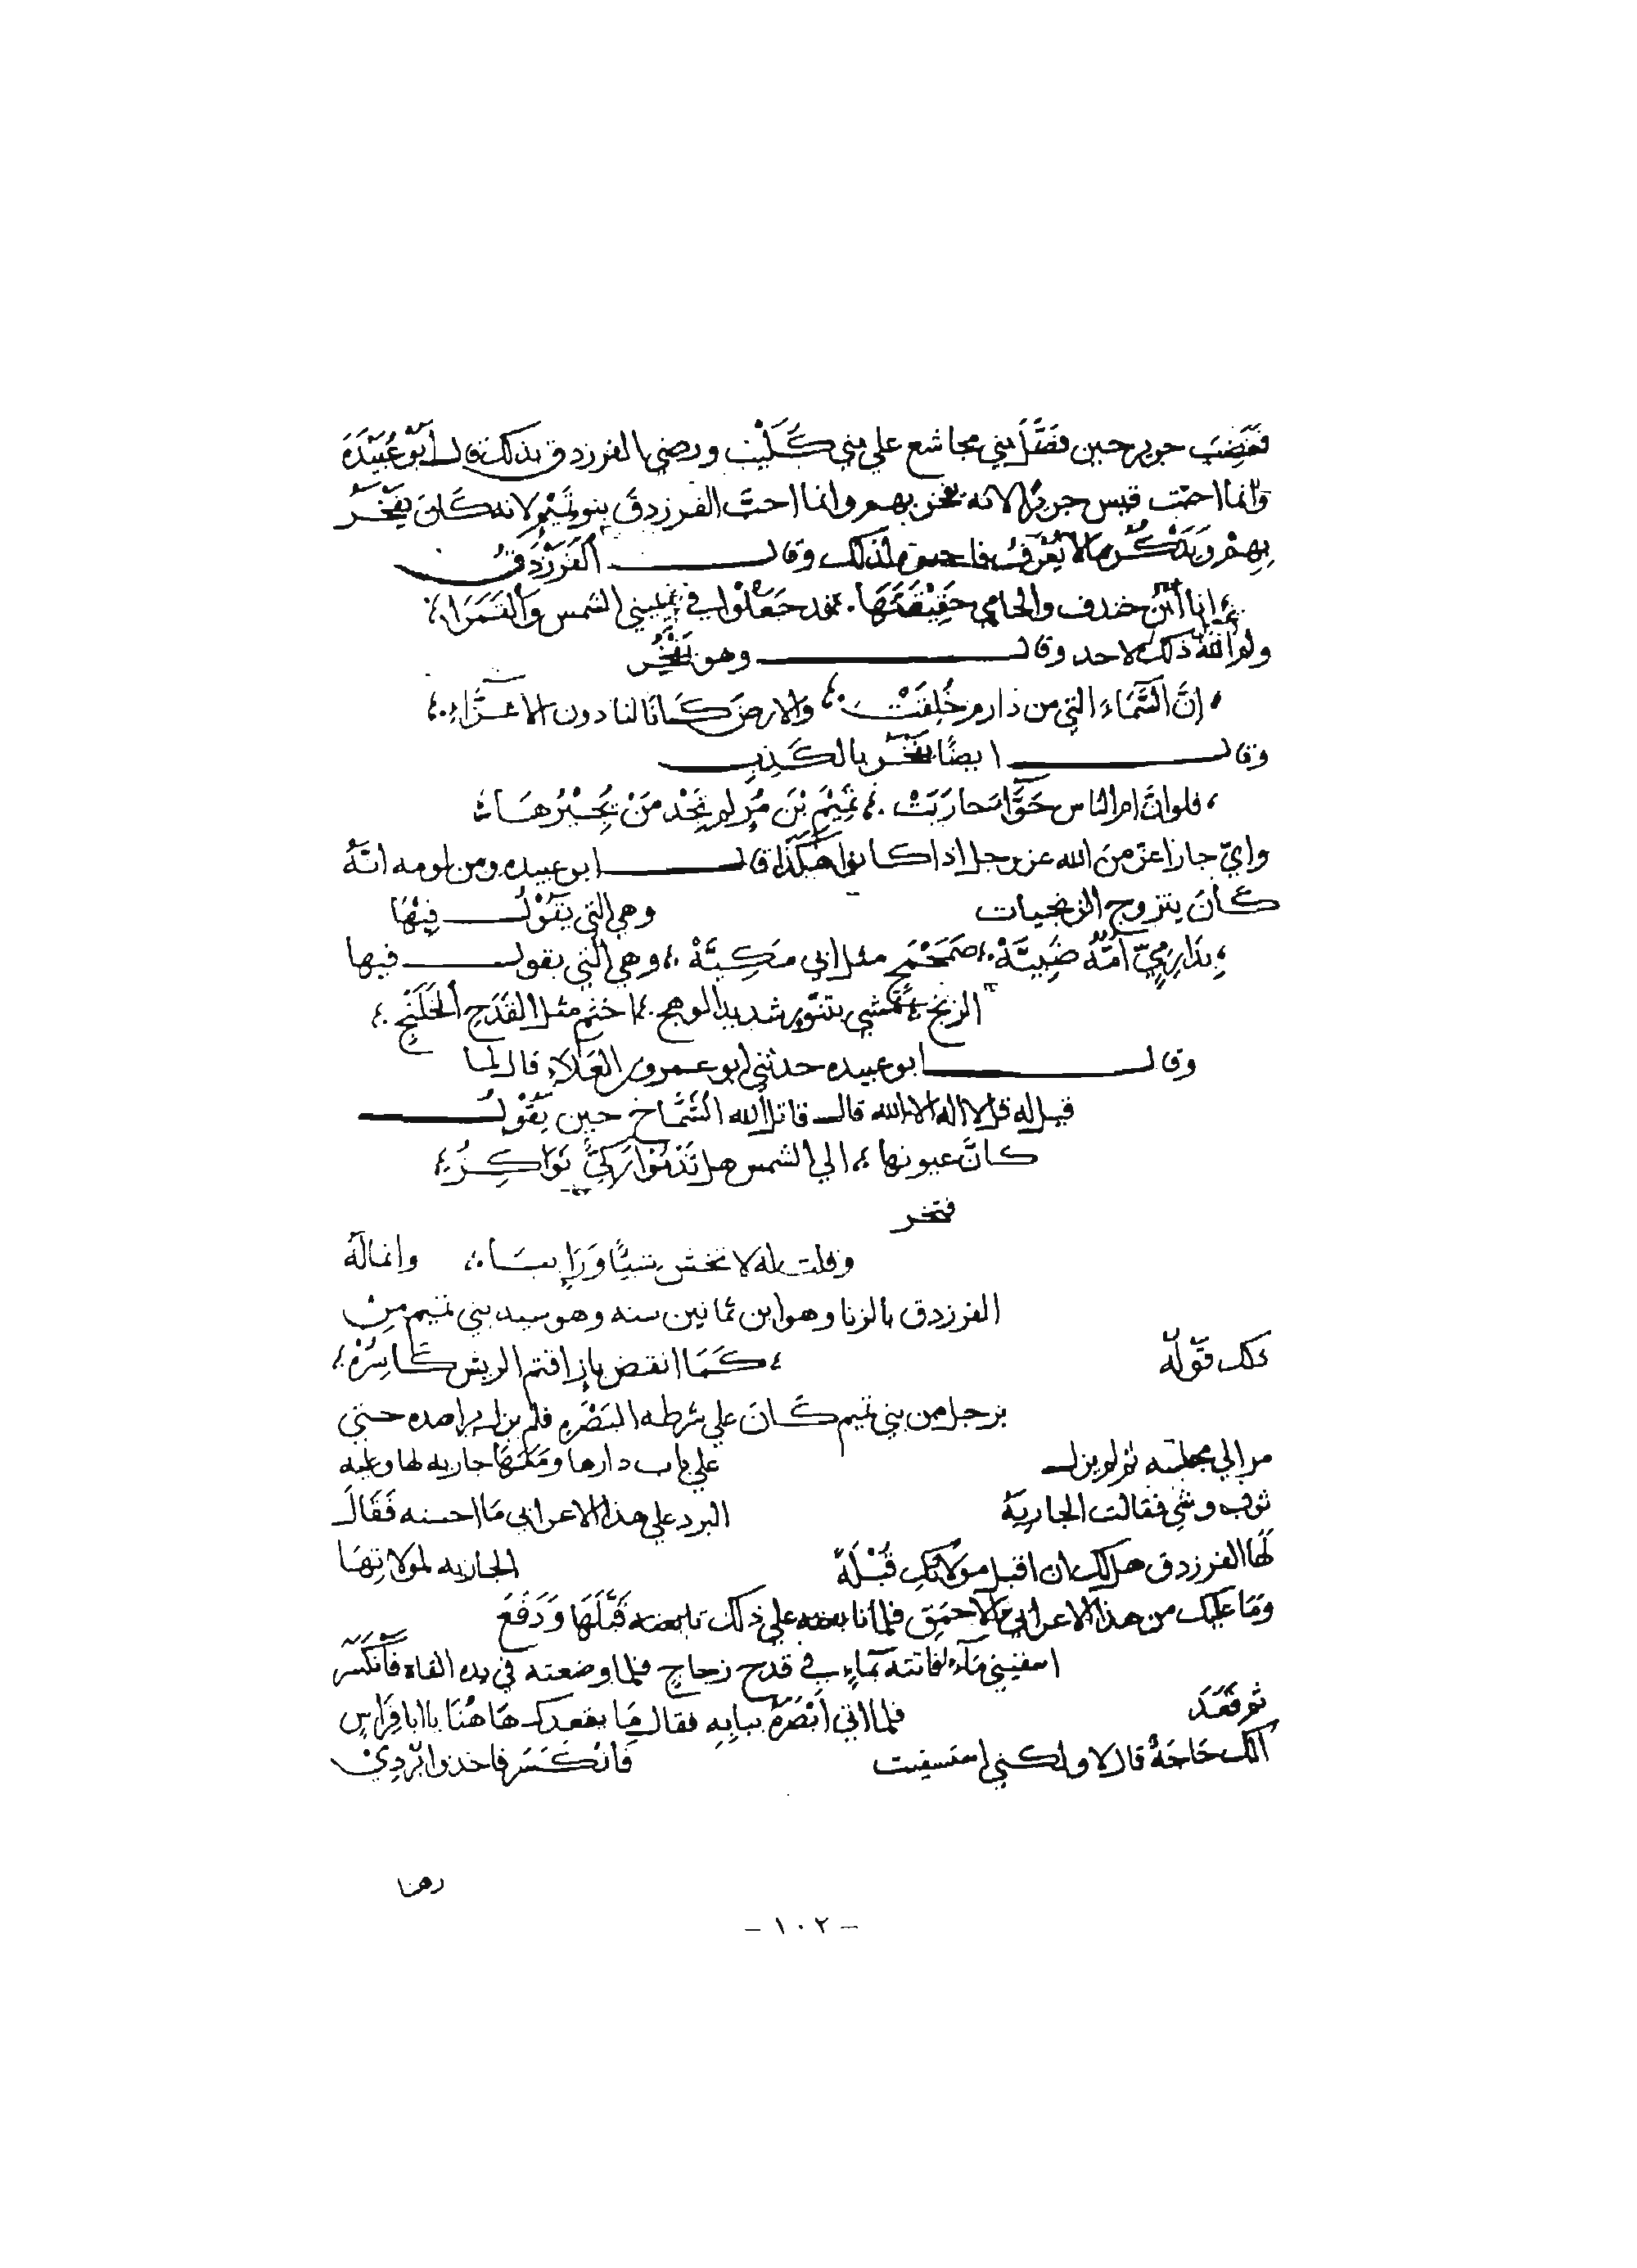 فغَضِبَ جرير حين فضَّلَ بني مجاشع علي بني كَلَيْب ورضي الفرزدق بذلك قال أبُو عُبَيْدَةَ
وانما احبّت قيس جريرًا لانه يفخر بهم وانما احبَّ الفرزدقَ بنو تَميْمٍ لانه كَانَ يفخَرُ
بِهِمْ وَيَذْكُرُ مالا يُعْرَفُ فاحبوه لذلك وقال الفَرَزْدَقُ
انا ابْنُ خندف والحامي حَقِيْقَتَهَا ؛ قد جَعَلُوا في يميني الشمس وَالْقَمَرَا ؛
ولم الله ذلك لاحد وقال وهو يَفْخُر
إنَّ السَّمَاءَ التي من دارم خُلِقَتْ ؛ والارضَ كَانَا لنا دون الاعزَّاءِ ؛
وقال ايضًا يفخَر بالكَذِبِ
فلو انَّ ام الناس حَوَّاءَ حارَبَتْ ؛ تَمِيْمَ بْنَ مُرٍ لم تَجْد مَنْ تُجِيْرُهَا
وايّ جار اعزّ منَ الله عز وجل اذا كانوا هكذا قال ابو عبيده ومن لومه انَّهُ
كَانَ يتزوج الزنجيات وهي التي يَقُوْلُ فِيْهَا
دَارِمِيّ أمُّهُ ضَبِيَّةْ ؛ صَمَحْمَحٍ مثل ابي مَكِيَّةْ ؛ وهي التي يقول فيها
الزنج تَمشي بتنّورٍ شديد الوهج ؛ اخثم مثل القَدَحِ الخَلَنْجِ ؛
وقال ابو عبيده حدثني ابو عمرو بن العَلاءِ قال لما
قيل له قل لا اله الا الله قال قاتل الله الشَّمَّاخ حين يَقُوْلُ
كانَّ عيونها ؛ الي الشمس هل تَدْنُوا رَكِيٌّ نَوَاكِزُ ؛
فتخر
وقلت له لا تخش شيًا وَرَاييَا ؛ وانما لهُ
الفرزدق بالزنا وهو ابن ثمانين سنه وهو سيد بني تميم مِنْ
ذلك قوله ؛ كَمَا انقض بازٍ اقتم الريش كَاسِرُهْ ؛
برجل من بني تميم كَانَ علي شرطه البَصْرَهِ فلم يزل يراصده حتي
مر الي مجلسه ثم لم يزل علي باب دارها ومَعَهَا جاريه لها وعليه
ثوب وشي فقالت الجاريَة البرد علي هذا الاعرابي مَا احسنه فَقَالَ
لَهَا الفرزدق هل لك ان اقبل مَوْلاتَكِ قُبْلَةً الجاريه لمولاتِهَا
وَمَا عليك من هذا الاعرابي الاحمَقِ فلما علي ذلك قَبَّلَهَا وَدَفَعَ
اسقيني مَآءً فاتته بمَاءٍ في قدح زجاجٍ فلما وضعته في يده القاه فَانكَسَرَ
ثم قَعَدَ فلما اتي أَبْصَرَهُ ببابِهِ فقال مَا يقعدك هَاهُنَا يا ابا فِرَاسٍ
الك حَاجَةٌ قال لا ولكني استسقيت فَانْكَسَرَ فاخذوا بُرْدِيْ
رهنا
- ١٠٢ -